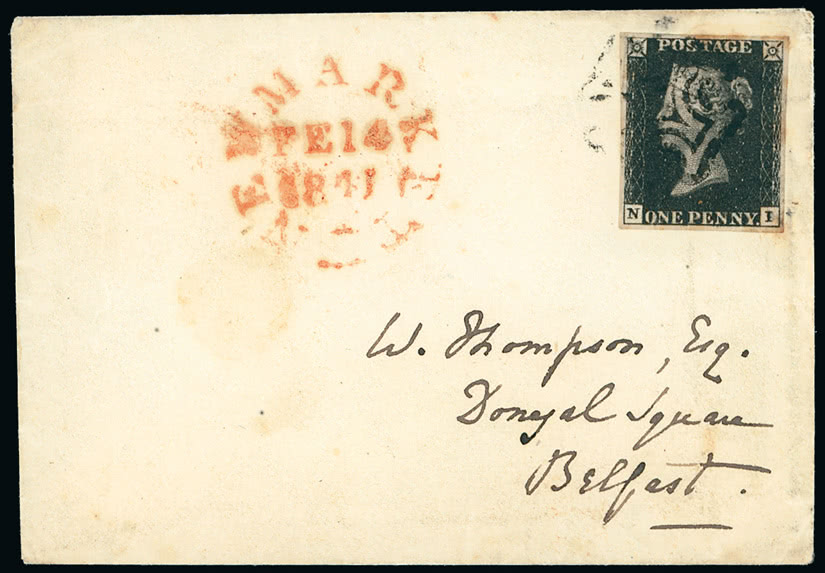 MARK
FE 14
1841
POSTAGE
N ONE PENNY. I
W. Thompson, Esq.
Donegal Square
Belfast.